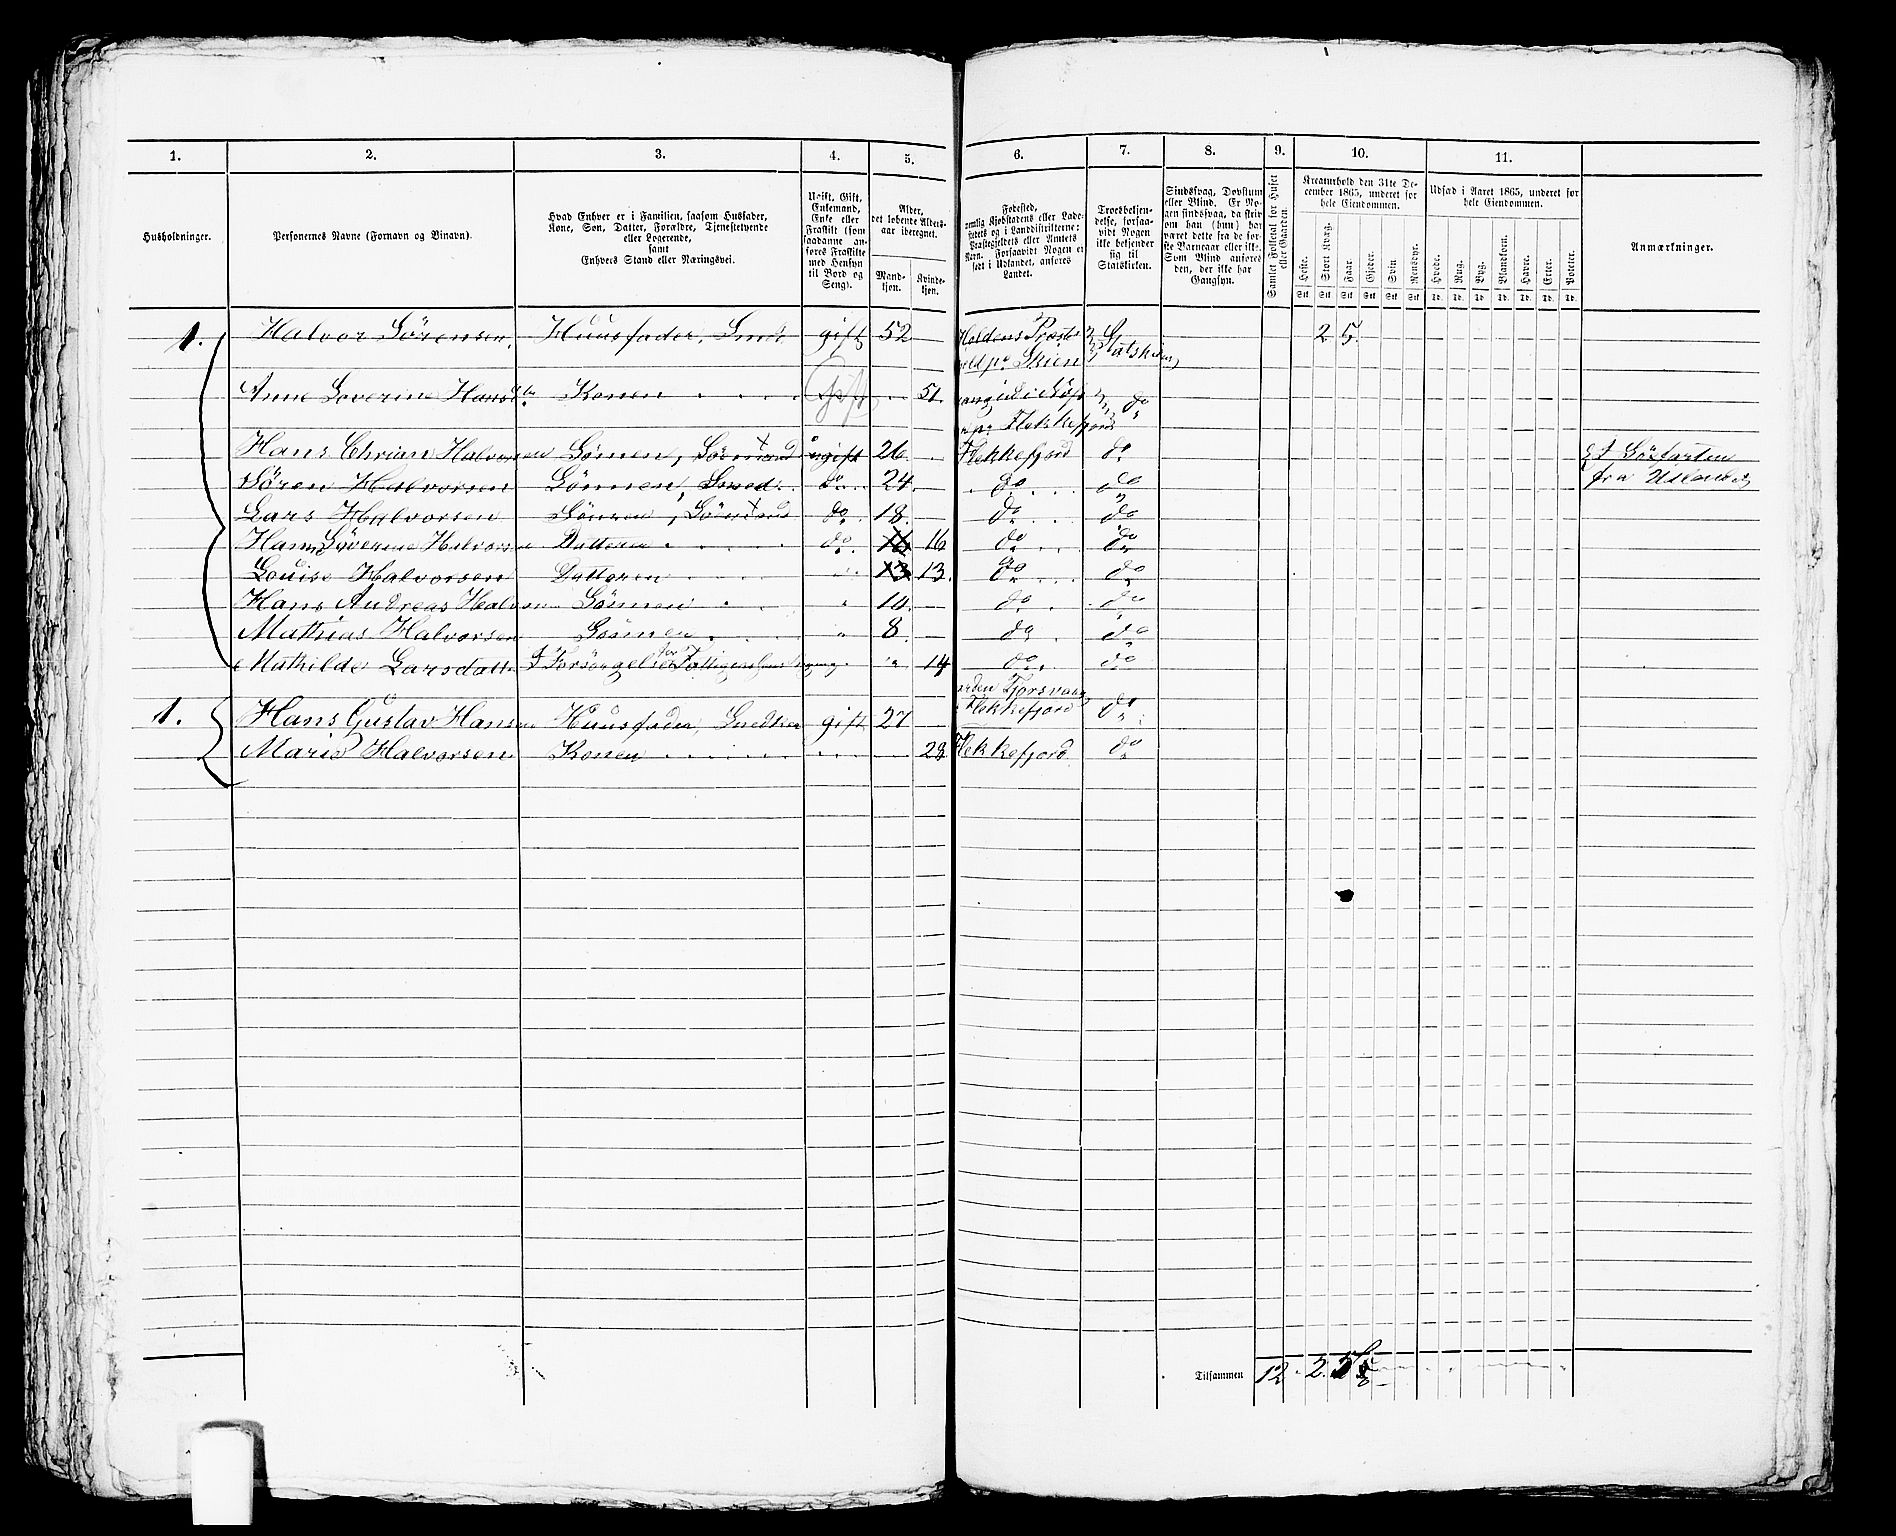 1. 2. 3. 4. 5. 6. 7. 8. 9. 10. 11.
Husholdninger.
Personernes Navne (Fornavn og Binavn).
Hvad Enhver er i Familien, saasom Husfader,
Kone, Søn, Datter, Forældre, Tjenestetyende
eller Logerende,
samt
Enhvers Stand eller Næringsvei.
Ugift, Gift,
Enkemand,
Enke eller
Fraskilt (som
saadanne an-
føres Fraskilte
med Hensyn
til Bord og
Seng).
Alder,
det løbende Alders-
aar iberegnet.
Mand-
kjøn.
Kvinde-
kjøn.
Fødested,
nemlig Kjøbstadens eller Lade-
stedets og i Landdistrikterne:
Præstegjeldets eller Amtets
Navn. Forsaavidt Nogen er
født i Udlandet, anføres
Landet.
Troesbekjen-
delse, forsaa-
vidt Nogen
ikke bekjender
sig til
Statskirken.
Sindssvag, Døvstum
eller Blind. Er No-
gen sindssvag, da skriv
om han (hun) har
været dette fra de før-
ste Barneaar eller ikke.
Som Blind anføres
den, der ikke har
Gangsyn.
Gamlet Folketal for Huset
eller Gaarden.
Kreaturhold den 31te De-
cember 1865, underet for
hele Eiendommen.
Heste. Stort Kvæg. Faar. Gjeder. Svin Rensdyr.
Stk Stk Stk Stk Stk Stk
Udsæd i Aaret 1865, underet for
hele Eiendommen.
Hvede. Rug. Byg. Blandkorn. Havre. Erter. Poteter.
Td. Td. Td. Td. Td. Td. Td.
Anmærkninger.
1. Halvor Sörensen, Huusfader, Smed gift 52 Holdens Præste 2 5
gjeld pr. Skien Statskirken
Anne Soverine Hansd. Konen Gift 51
pr. Flekkefjord do
Hans Chrian Halvorsen Sönnen, Sömand ugift 26 Flekkefjord do Et Söfarten
Sören Halvorsen Sönnen, Smed do 24. do do fra Udlandet
Lars Halvorsen Sönnen, Sömand do 18. do do
Hans Söverine Halvorsen Datteren do 16 16 do do
Louise Halvorsen Datteren " 13 13. do do
Hans Andreas Halvorsen Sönnen " 10. do do
Mathias Halvorsen Sönnen " 8. do do
Mathilde Larsdatter I Forsörgelse for " 14 do do
Gaarden Fjorsvaag
1. Hans Gustav Hansen Huusfader, Snedker gift 27 Flekkefjord do
Marie Halvorsen Konen 28 Flekkefjord. do
Tilsammen 12 2. 5